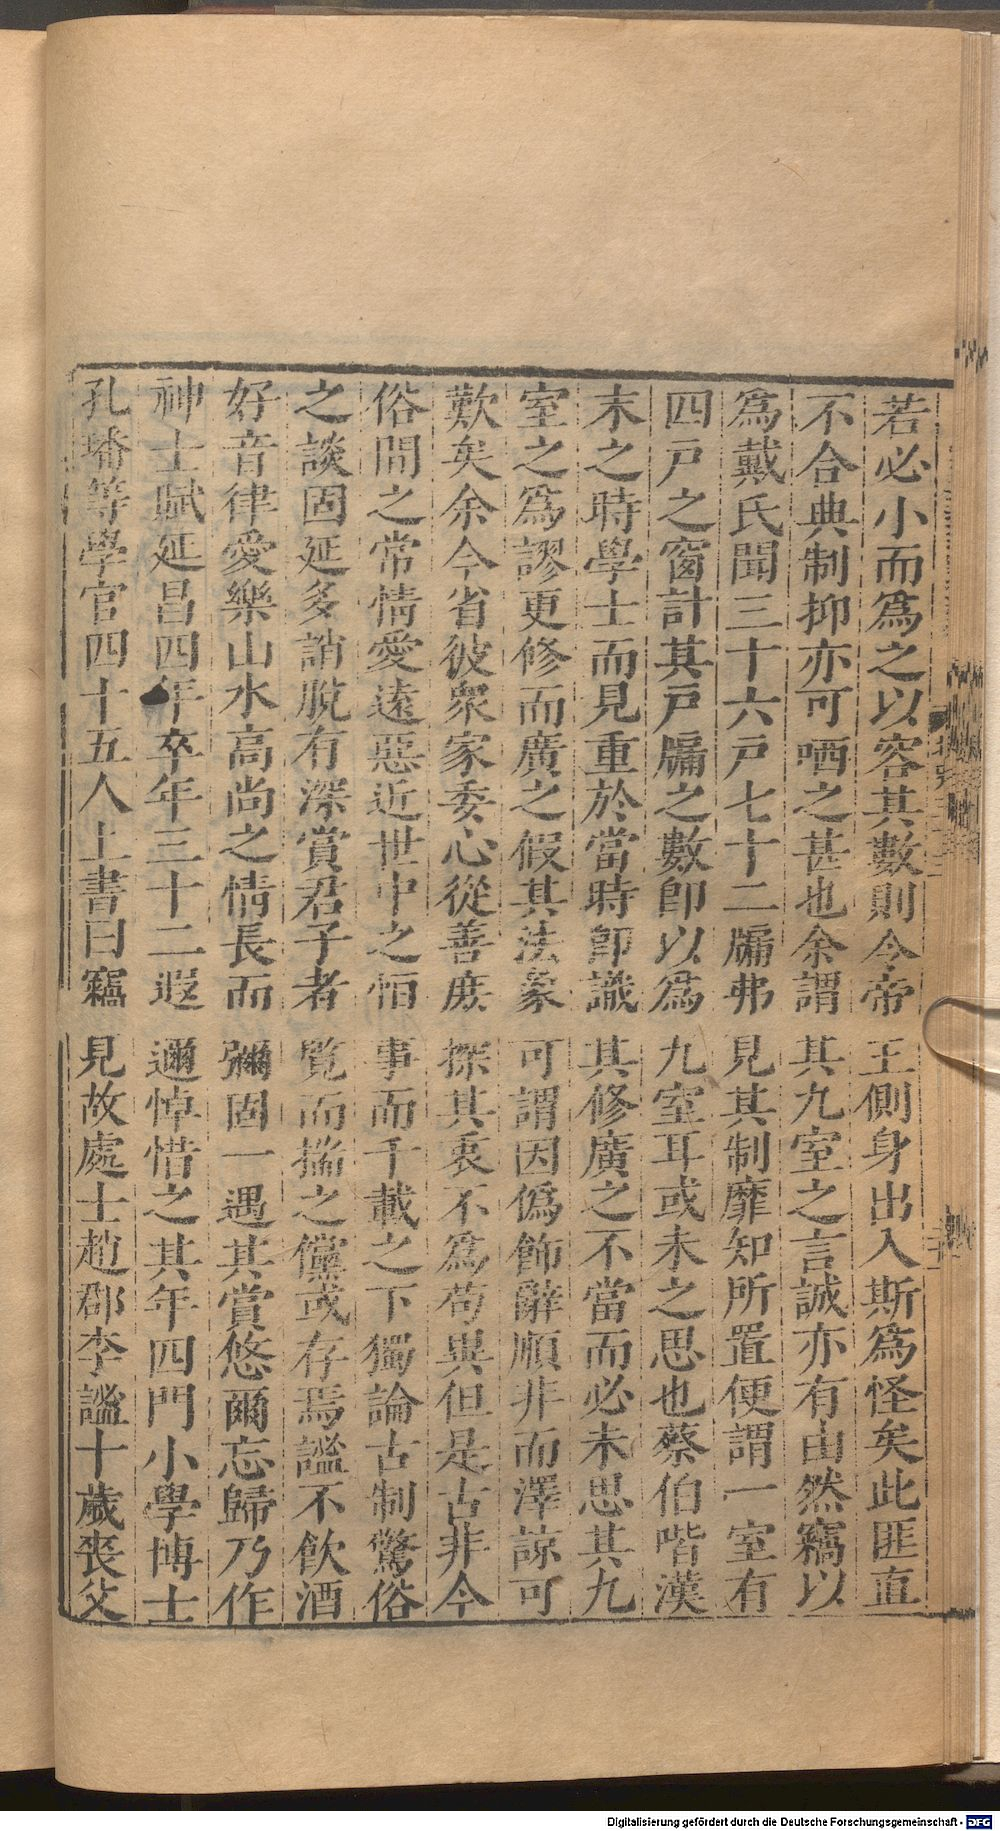 若必小而爲之以容其數則今帝王側身出入斯爲怪矣此匪直
不合典制抑亦可哂之甚也余謂其九室之言誠亦有由然竊以
爲戴氏聞三十六戸七十二牖弗見其制靡知所置便謂一室有
四戸之窗計其戸牖之數即以爲九室耳或未之思也蔡伯喈漢
末之時學士而見重於當時即識其修廣之不當而必未思其九
室之爲謬更修而廣之假其法象可謂因偽飾辭順非而澤諒可
歎矣余今省彼衆家委心從善庶探其衷不爲苟異但是古非今
俗間之常情愛遠惡近世中之恒事而千載之下獨論古制驚俗
之談固延多誚脫有深賞君子者覽而揣之儻或存焉謐不飲酒
好音律愛樂山水高尚之情長而彌固一遇其賞悠爾忘歸乃作
神士賦延昌四年卒年三十二遐邇悼惜之其年四門小學博士
孔璠等學官四十五人上書曰竊見故處士趙郡李謐十歲喪父
Digitalisierung gefördert durch die Deutsche Forschungsgemeinschaft - DFG